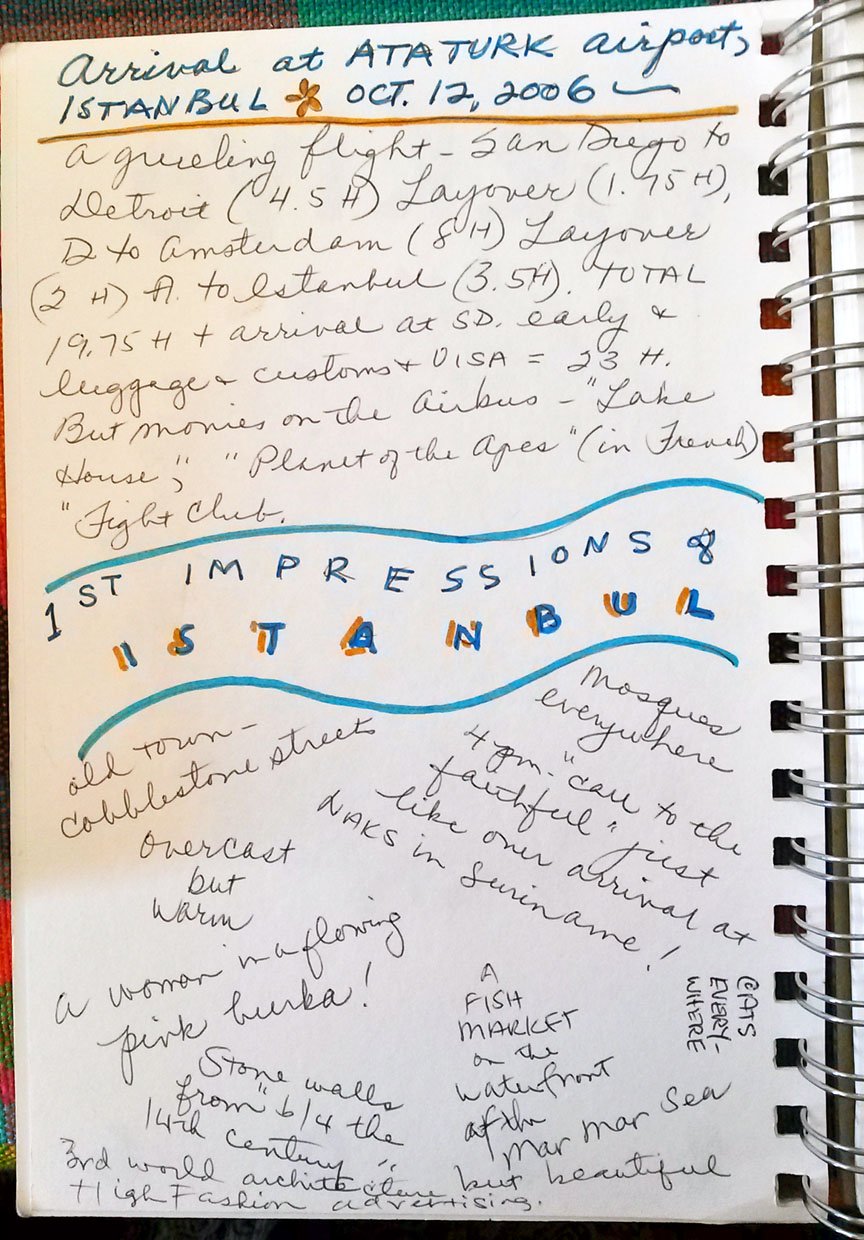 Arrival at ATATURK airport,
ISTANBUL OCT. 12, 2006
A grueling flight - San Diego to
Detroit (4.5 H) Layover (1.75 H),
D to Amsterdam (8 H) Layover
(2 H) A. to Istanbul (3.5H). TOTAL
19.75 H + arrival at SD. early &
luggage & customs + VISA = 23 H.
But movies on the Airbus - "Lake
House", "Planet of the Apes" (in French)
"Fight Club.
1ST IMPRESSIONS of
ISTANBUL
old town -
cobblestone streets
Mosques
everywhere
4 pm. "call to the
faithful" just
like our arrival at
LAKS in Suriname!
Overcast
but
warm
A woman in a flowing
pink burka!
CATS
EVERY-
WHERE
A
FISH
MARKET
on the
waterfront
of the
Mar Mar Sea
Stone walls
from "b/4 the
14th century"
3rd world architecture but beautiful
+ High Fashion advertising.